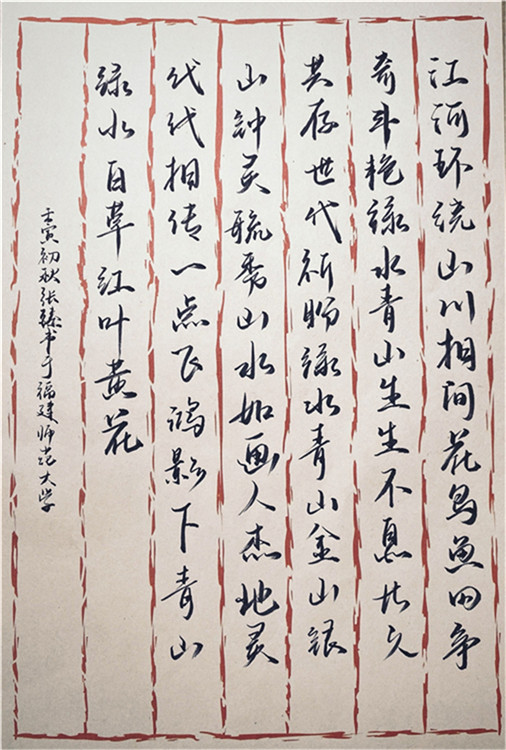 江河环绕山川相间花鸟鱼虫争
奇斗艳绿水青山生生不息久
共存世代祈盼绿水青山金山银
山钟灵毓秀山水如画人杰地灵
代代相传一点飞鸿影下青山
绿水白草红叶黄花
壬寅初秋张臻书于福建师范大学